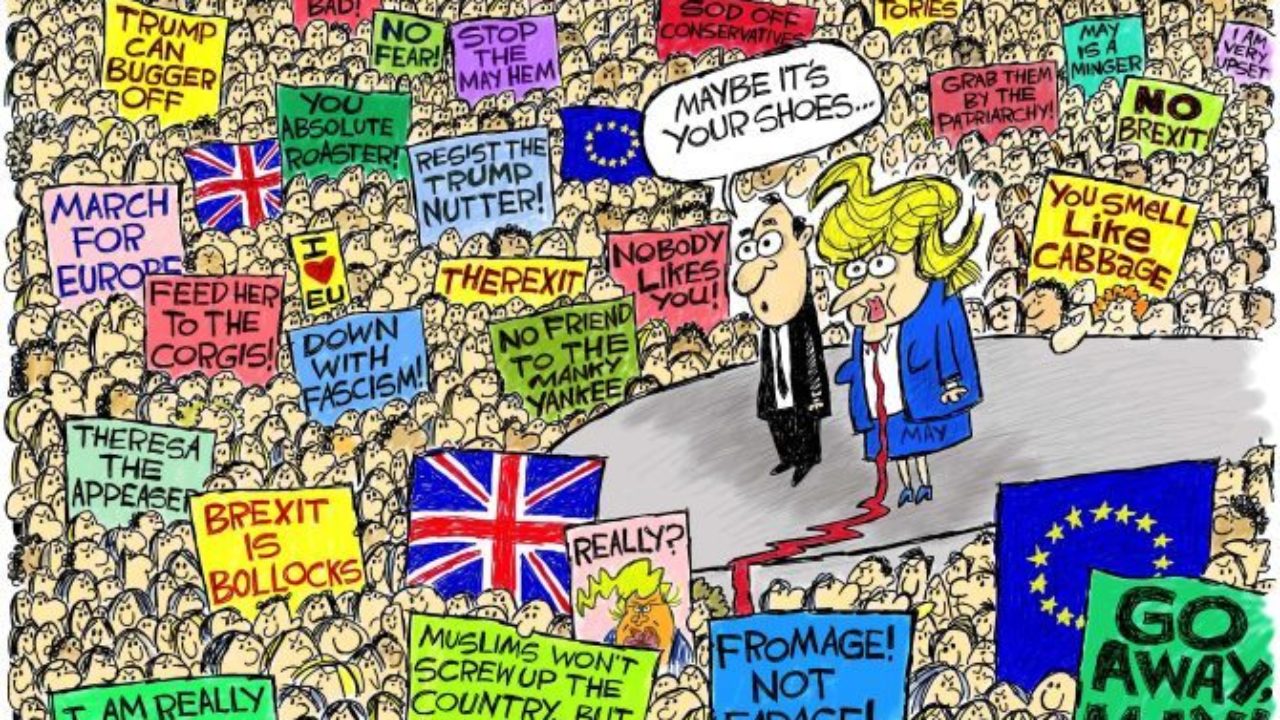 TRUMP
CAN
BUGGER
OFF
BAD!
NO
FEAR!
STOP
THE
MAY HEM
SOD OFF
CONSERVATIVES
TORIES
MAY
IS A
MINGER
I AM
VERY
UPSET
MAYBE IT'S
YOUR SHOES...
GRAB THEM
BY THE
PATRIARCHY!
NO
BREXIT!
YOU
ABSOLUTE
ROASTER!
RESIST THE
TRUMP
NUTTER!
MARCH
FOR
EUROPE
I
EU
THEREXIT
NOBODY
LIKES
YOU!
YOU SMELL
LIKE
CABBAGE
FEED HER
TO THE
CORGIS!
DOWN
WITH
FASCISM!
NO FRIEND
TO THE
MANKY
YANKEE
MAY
THERESA
THE
APPEASER
BREXIT
IS
BOLLOCKS
REALLY?
MUSLIMS WON'T
SCREW UP THE
COUNTRY, BUT
FROMAGE!
NOT
FARAGE!
GO
AWAY,
I AM REALLY